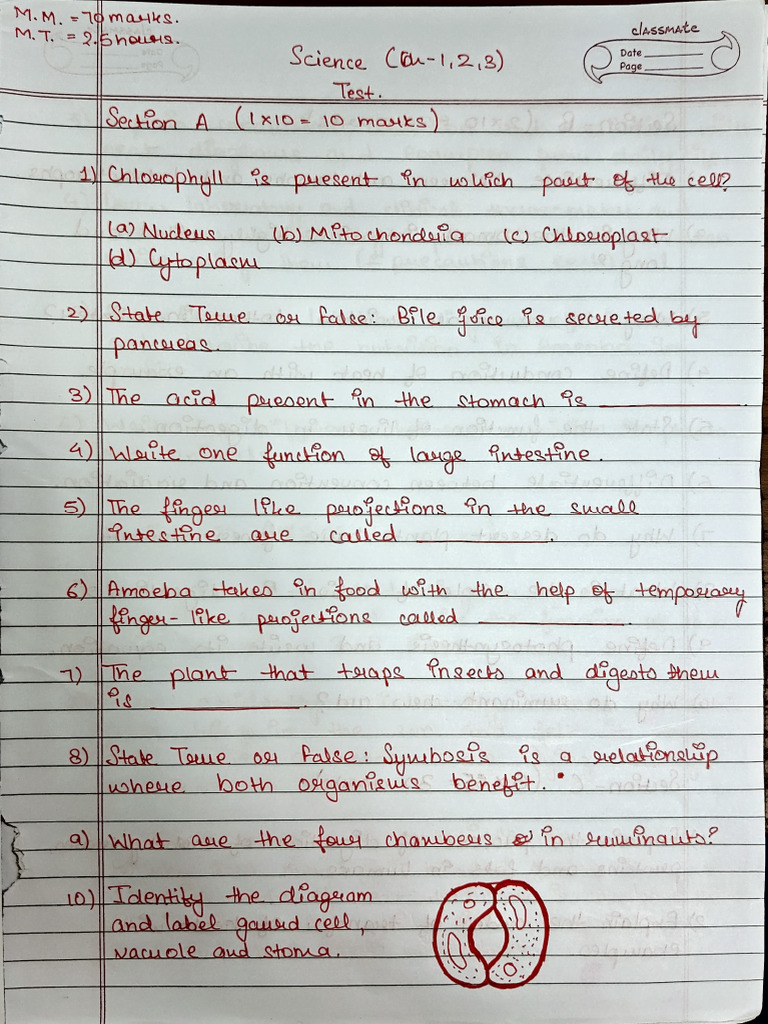 M.M. = 70 marks.
M.T. = 2.5 hours.
classmate
Date
Page
Science (Ch-1,2,3)
Test.
Section A (1×10 = 10 marks)
1) Chlorophyll is present in which part of the cell?
(a) Nucleus (b) Mitochondria (c) Chloroplast
(d) Cytoplasm
2) State True or False: Bile juice is secreted by
pancreas.
3) The acid present in the stomach is ________.
4) Write one function of large intestine.
5) The finger like projections in the small
intestine are called ________.
6) Amoeba takes in food with the help of temporary
finger-like projections called ________.
7) The plant that traps insects and digests them
is ________.
8) State True or False: Symbosis is a relationship
where both organisms benefit.
9) What are the four chambers in ruminants?
10) Identify the diagram
and label gaurd cell,
vacuole and stoma.